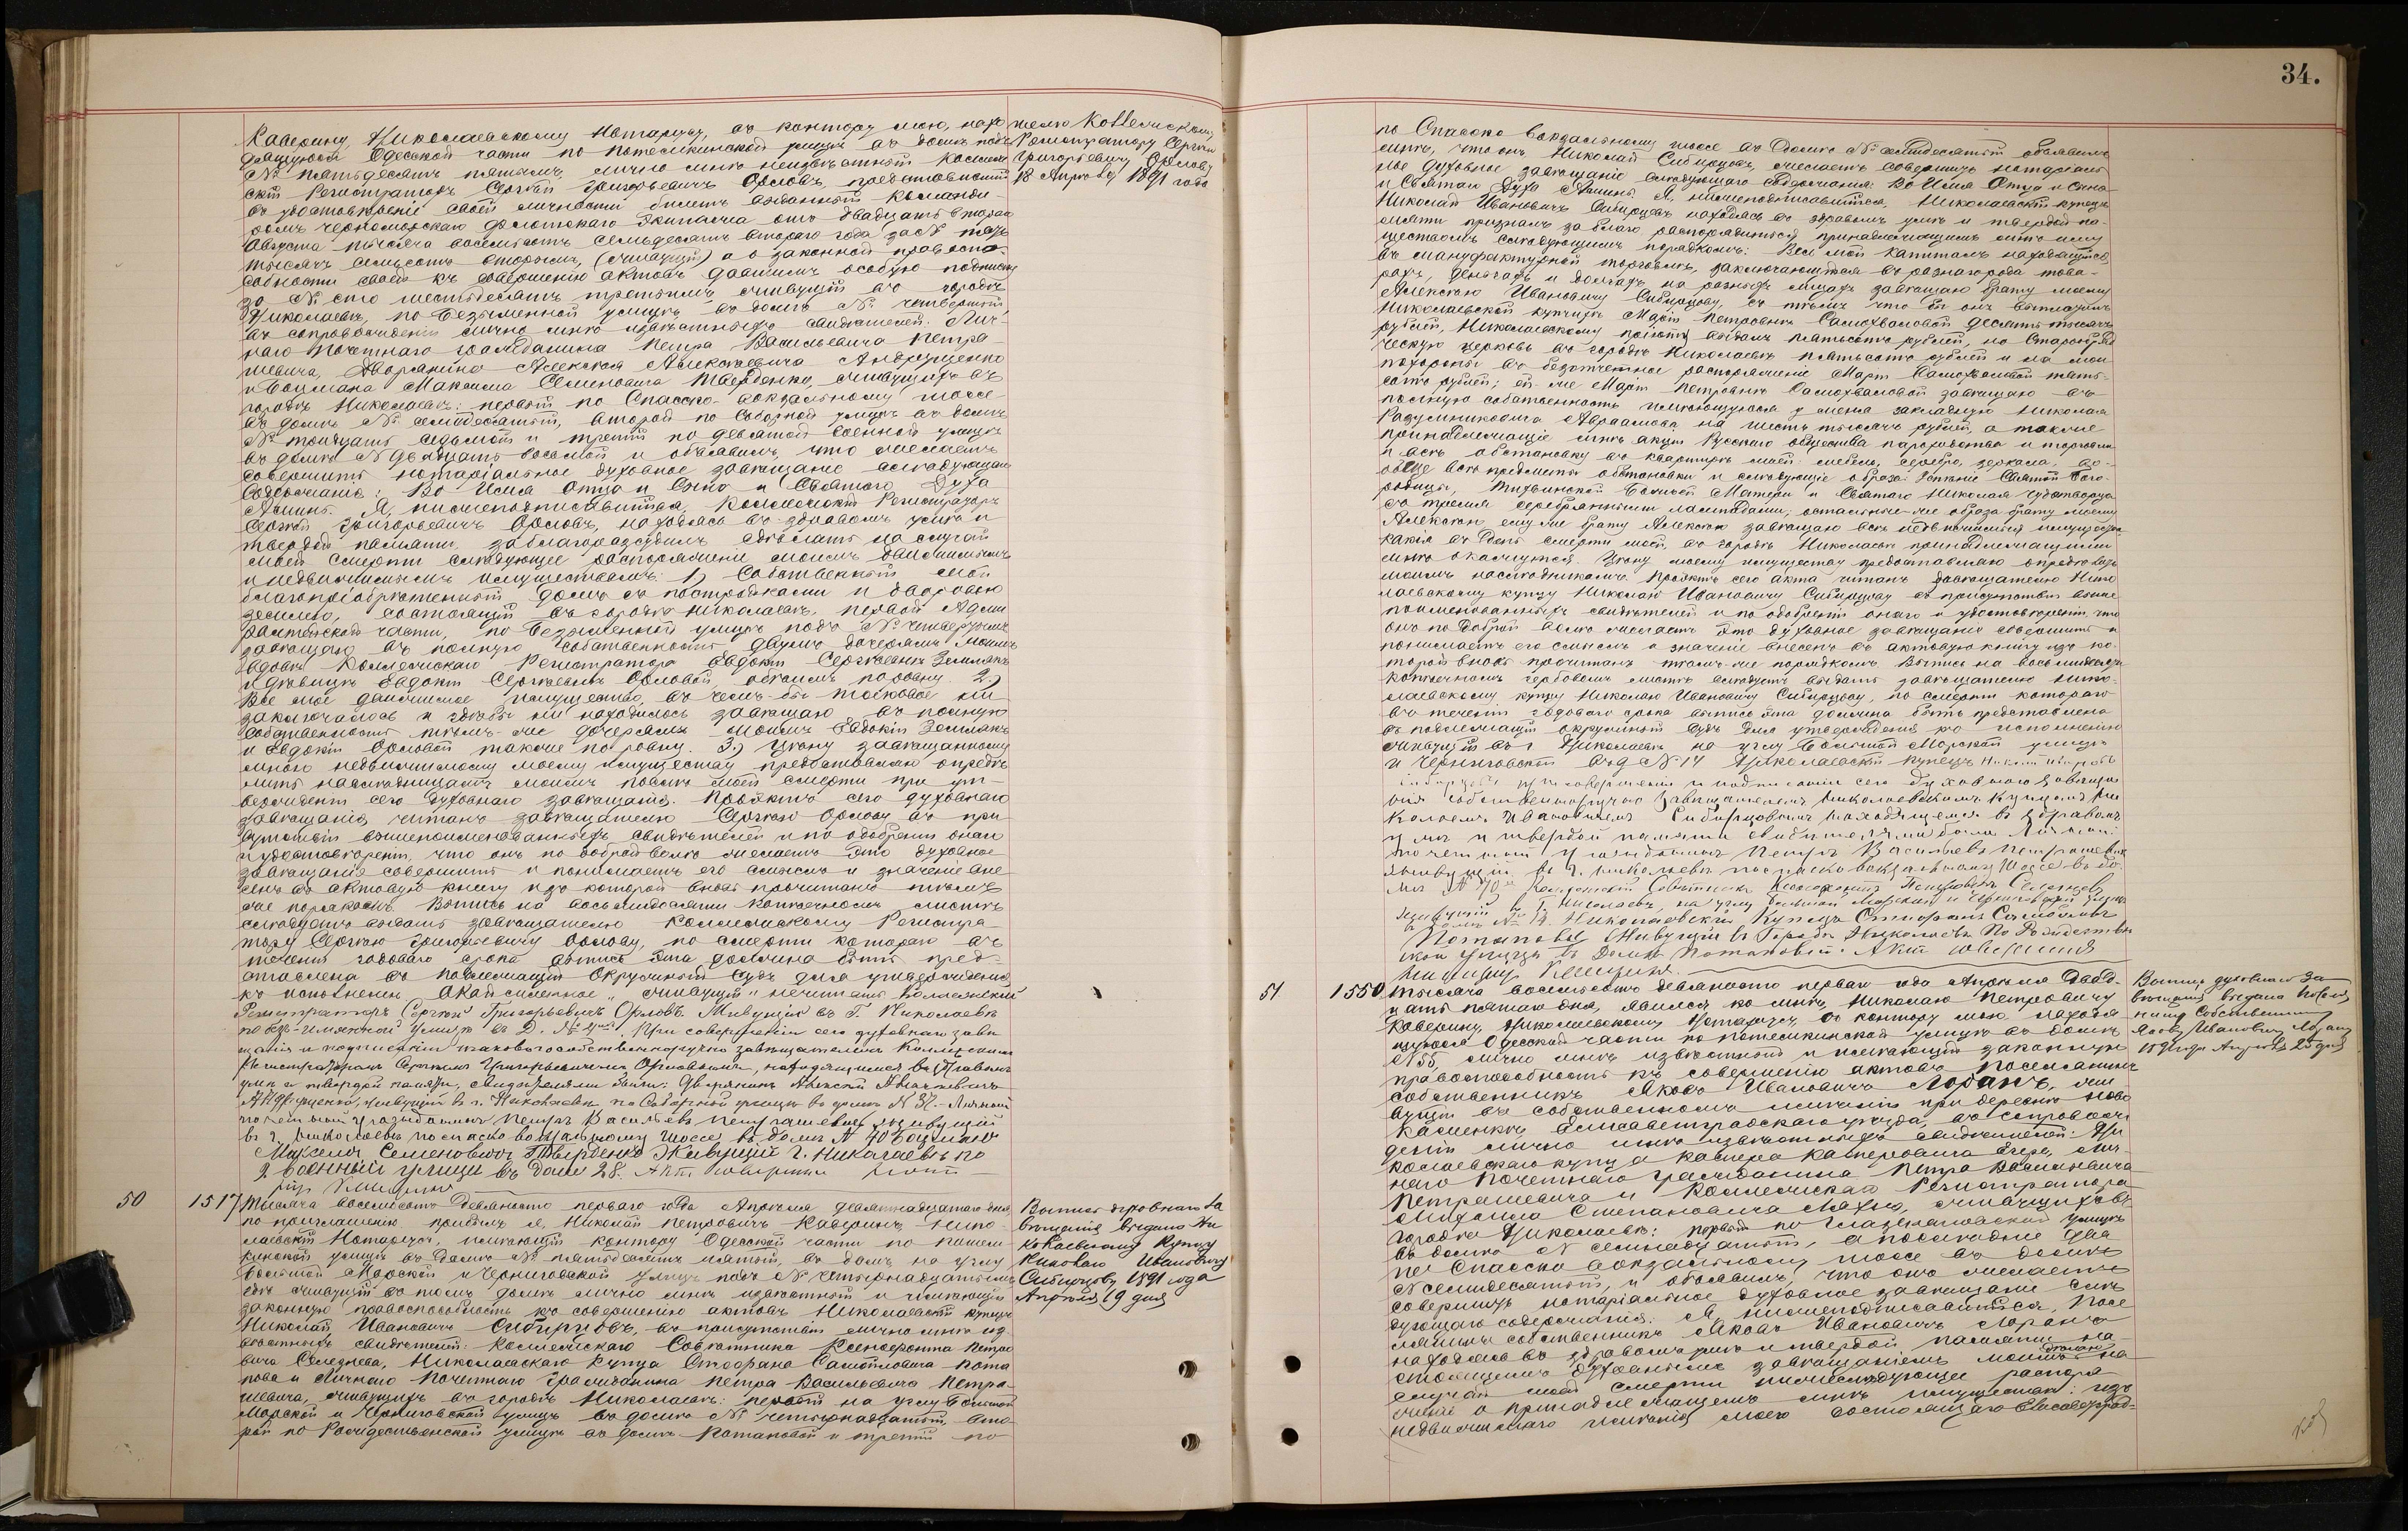 34.
Каверину, Николаевскому Нотаріусу, въ контору мою, нахо
дящуюся Одесской части по Потемкинской улицѣ въ домѣ подъ
№ пятьдесятъ пятымъ, лично мнѣ неизвѣстный Коллеж
скій Регистраторъ Сергѣй Григорьевичъ Орловъ, представившій
въ удостовѣреніе своей личности билетъ выданный Команди
ромъ Черноморскаго флотскаго Экипажа отъ двадцать втораго
Августа мѣсяца восемьсотъ семьдесятъ втораго года за №
тысячъ семьсотъ вторымъ, (живущій) а о законной правоспо
собности своей къ совершенію актовъ давшимъ особую подписку
за № сто шестьдесятъ третьимъ живущій въ городѣ
Николаевѣ, по Безыменной улицѣ въ домѣ № четвертый
въ сопровожденіи лично мнѣ извѣстныхъ свидѣтелей: Лич
наго Почетнаго Гражданина Петра Васильевича Петра
шевича, Дворянина Алексѣя Алексѣевича Андрущенко
и Боцмана Максима Семеновича Тверденко, живущихъ въ
городѣ Николаевѣ: первый по Спасско-вокзальному шоссе
въ домѣ № семидесятый, второй по Соборной улицѣ въ домѣ
№ тридцать седьмой и третій по девятой Военной улицѣ
въ домѣ № двадцать восьмой и объявилъ, что желаетъ
совершить нотаріальное духовное завѣщаніе слѣдующаго
содержанія: Во Имя Отца и Сына и Святаго Духа
Аминь. Я, нижеподписавшійся, Коллежскій Регистраторъ
Сергѣй Григорьевичъ Орловъ, находясь въ здравомъ умѣ и
твердой памяти, заблагоразсудилъ сдѣлать на случай
моей смерти слѣдующее распоряженіе моимъ движимымъ
и недвижимымъ имуществомъ: 1) Собственный мой
благопріобрѣтенный домъ съ постройками и дворовою
землею, состоящій въ городѣ Николаевѣ, первой Адми
ралтейской части, по Безыменной улицѣ подъ № четвертымъ
завѣщаю въ полную собственность двумъ дочерямъ моимъ
вдовѣ Коллежскаго Регистратора Евдокіи Сергѣевнѣ Землякъ
и дѣвицѣ Евдокіи Сергѣевнѣ Орловой, обѣимъ поровну. 2)
Все мое движимое имущество, въ чемъ-бы таковое ни
заключалось и гдѣбы ни находилось завѣщаю въ полную
собственность тѣмъ-же дочерямъ моимъ Евдокіи Землякъ
и Евдокіи Орловой также поровну. 3) Цѣну завѣщанному
мною недвижимому моему имуществу предоставляю опредѣ
лить наслѣдницамъ моимъ послѣ моей смерти при ут
вержденіи сего духовнаго завѣщанія. Проэктъ сего духовнаго
завѣщанія читанъ завѣщателю Сергѣю Орлову въ при
сутствіи вышепоименованныхъ свидѣтелей и по одобреніи онаго
и удостовѣреніи, что онъ по доброй волѣ желаетъ это духовное
завѣщаніе совершить и понимаетъ его смыслъ и значеніе вне
сенъ въ актовую книгу изъ которой вновь прочитано тѣмъ
же порядкомъ. Выпись на восьмидесяти копѣечномъ листѣ
слѣдуетъ выдать завѣщателю Коллежскому Регистра
тору Сергѣю Григорьевичу Орлову, по смерти котораго въ
теченіи годоваго срока выпись эта должна быть пред
ставлена въ подлежащій Окружный Судъ для утвержденія
къ исполненію. Окаймленное „живущій“ нечитать Коллежскій
Регистраторъ Сергѣй Григорьевъ Орловъ. Живущій въ Г. Николаевѣ
по Безъ-имянной улицѣ въ д. № 4й При совершеніи сего духовнаго завѣ
щанія и подписаніи таковаго собственноручно завѣщателемъ Коллежскимъ
Регистраторомъ Сергѣемъ Григорьевичемъ Орловымъ, находящимся въ здравомъ
умѣ и твердой памяти, свидѣтелями были: Дворянинъ Алексѣй Алексѣевичъ
Андрущенко, живущій въ г. Николаевѣ по Соборной улицѣ въ домѣ № 37. Личный
почетный гражданинъ Петръ Васильевъ Петрашевичъ живущій
въ г. Николаевѣ по спаско вокзальному шоссе въ домѣ № 70 Боцманъ
Максимъ Семеновичъ Твѣрденко Живущій Г. Николаевѣ по
9 военный улицы въ доме 28. Актъ совершилъ
жело Коллежскому
Регистратору Сергѣю
Григорьевичу Орлову
18 Апрѣля 1891 года
50 1517 Тысяча восемьсотъ девяносто перваго года Апрѣля девятнадцатаго дня
по приглашенію прибылъ я, Николай Петровичъ Каверинъ Нико
лаевскій Нотаріусъ, имѣющій контору Одесской части по Потем
кинской улицѣ въ домѣ № пятьдесятъ пятый, въ домъ на углу
Большой Морской и Черниговской улицъ подъ № четырнадцатымъ
гдѣ живущій въ томъ домѣ лично мнѣ извѣстный и имѣющій
законную правоспособность къ совершенію актовъ Николаевскій купецъ
Николай Ивановичъ Сибирцовъ, въ присутствіи лично мнѣ из
вѣстныхъ свидѣтелей: Коллежскаго Совѣтника Ксенофонта Петро
вича Селезнева, Николаевскаго купца Стефана Самойловича Пота
пова и Личнаго Почетнаго Гражданина Петра Васильевича Петра
шевича, живущихъ въ городѣ Николаевѣ: первый на углу Большой
Морской и Черниговской улицъ въ домѣ № четырнадцатый, вто
рой по Рождественской улицѣ въ домѣ Потаповой и третій по
Выпись духовнаго за
вѣщанія выдана Ни
колаевскому Купцу
Николаю Ивановичу
Сибирцову 1891 года
Апрѣля 19 дня
по Спасско вокзальному шоссе въ домѣ № семидесятый объявилъ
мнѣ, что онъ Николай Сибирцовъ, желаетъ совершить нотаріаль
ное духовное завѣщаніе слѣдующаго содержанія: Во Имя Отца и Сына
и Святаго Духа Аминь. Я, нижеподписавшійся, Николаевскій купецъ
Николай Ивановичъ Сибирцовъ находясь въ здравомъ умѣ и твердой па
мяти призналъ за благо распорядиться принадлежащимъ мнѣ иму
ществомъ слѣдующимъ порядкомъ: Весь мой капиталъ находящійся
въ мануфактурной торговлѣ, заключающійся въ разнагорода това
рахъ, деньгахъ и долгахъ на разныхъ лицахъ завѣщаю брату моему
Алексѣю Ивановичу Сибирцову, съ тѣмъ что бы онъ выплатилъ
Николаевской купчихѣ Маріи Петровнѣ Самохваловой десять тысячъ
рублей, Николаевскому пріюту выдалъ пятьсотъ рублей, на Старообряд
ческую церковь въ городѣ Николаевѣ пятьсотъ рублей и на мои
похороны въ безотчетное распоряженіе Маріи Самохваловой пять
сотъ рублей; ей же Маріи Петровнѣ Самохваловой завѣщаю въ
полную собственность имѣющуюся у меня закладную Николая
Авраамова на шесть тысячъ рублей, а также
принадлежащіе мнѣ акціи Русскаго общества пароходства и торговли
и всю обстановку въ квартирѣ моей: мебель, серебро, зеркала, во
обще всѣ предметы обстановки и слѣдующіе образа: Успеніе Святой Бого
родицы, Тихвинской Божьей Матери и Святаго Николая Чудотворца
съ тремя серебрянными лампадами; остальные-же образа брату моему
Алексѣю ему же брату Алексѣю завѣщаю всѣ недвижимыя имущества
какія въ день смерти моей, въ городѣ Николаевѣ принадлежащими
мнѣ окажутся. Цѣну моему имуществу предоставляю опредѣлить
моимъ наслѣдникамъ. Проэктъ сего акта читанъ завѣщателю Нико
лаевскому купцу Николаю Ивановичу Сибирцову въ присутствіи выше
поименованныхъ свидѣтелей и по одобреніи онаго и удостовѣреніи, что
онъ по доброй волѣ желаетъ это духовное завѣщаніе совершить и
понимаетъ его смыслъ и значеніе внесенъ въ актовую книгу изъ ко
торой вновь прочитанъ тѣмъ-же порядкомъ. Выпись на восьмидесяти
копѣечномъ гербовомъ листѣ слѣдуетъ выдать завѣщателю Нико
лаевскому купцу Николаю Ивановичу Сибирцову, по смерти котораго
въ теченіи годоваго срока выпись эта должна быть представлена
въ подлежащій окружный судъ для утвержденія къ исполненію
живущій въ г Николаевѣ на углу Большой Морской улицы
и Черниговской въ д № 14 Николаевскій купецъ Николай Ивановъ
Сибирцовъ при совершеніи и подписаніи сего духовнаго завѣща
нія собственноручно завѣщателемъ Николаевскимъ Купцомъ Ни
колаемъ Ивановичемъ Сибирцовымъ находящемся въ здравомъ
умѣ и твердой памяти свидѣтелями были Личный
почетный гражданинъ Петръ Васильевъ Петрашевичъ
живущій въ г. Николаевѣ по спаско вокзальному шоссе въ до
мѣ № 70 Коллежскій Совѣтникъ Ксенофонтъ Петровичъ Селезневъ
живущій въ Г. Николаевѣ, на углу Большой Морской и Черниговской улицъ
въ домѣ № 14. Николаевскій Купецъ Стефанъ Самойловъ
Потаповъ Живущій въ Городѣ Николаевѣ По Рождествен
ской улицѣ въ Доме Потаповой. Актъ совершилъ
51 1550 Тысяча восемьсотъ девяносто перваго года Апрѣля двад
цать пятаго дня, явился ко мнѣ, Николаю Петровичу
Каверину, Николаевскому Нотаріусу, въ контору мою находя
щуюся Одесской части по Потемкинской улицѣ въ домѣ
№ 55, лично мнѣ извѣстный и имѣющій законную
правоспособность къ совершенію актовъ Поселянинъ
собственникъ Яковъ Ивановичъ Лоранъ, жи
вущій въ собственномъ имѣніи при деревнѣ Ново
Каменкѣ, Елисаветградскаго уѣзда, въ сопровож
деніи лично мнѣ извѣстныхъ свидѣтелей: Ни
колаевскаго купца Каспера Касперовича Егера, Лич
наго Почетнаго Гражданина Петра Васильевича
Петрашевича и Коллежскаго Регистратора
Михаила Степановича Махно, живущихъ въ
городѣ Николаевѣ: первый по Глазенаповской улицѣ
въ домѣ № семнадцатый, а послѣдніе два
по Спасско вокзальному шоссе въ домѣ
№ семидесятый, и объявилъ, что онъ желаетъ
совершить нотаріальное духовное завѣщаніе слѣ
дующаго содержанія: Я, нижеподписавшійся, Посе
лянинъ собственникъ Яковъ Ивановичъ Лоранъ
находясь въ здравомъ умѣ и твердой памяти, на
стоящимъ духовнымъ завѣщаніемъ моимъ дѣлаю на
случай моей смерти нижеслѣдующее распоря
женіе о принадлежащемъ мнѣ имуществѣ: изъ
недвижимаго имѣнія моего состоящаго Елисаветград
Выпись духовнаго за
вѣщанія выдана Посе
лянину Собственнику
Якову Ивановичу Лорану
1891 года Апрѣля 25 дня